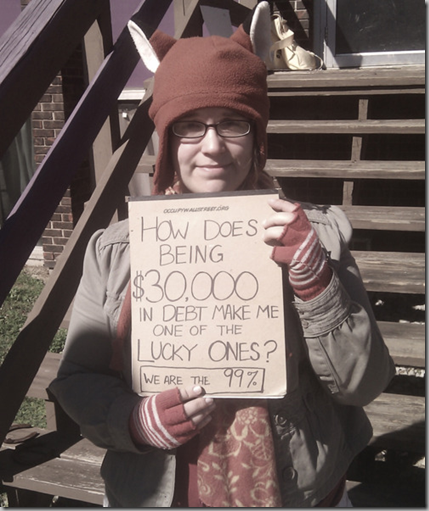 OCCUPYWALLSTREET.ORG
HOW DOES
BEING
$30,000
IN DEBT MAKE ME
ONE OF THE
LUCKY ONES?
WE ARE THE 99%